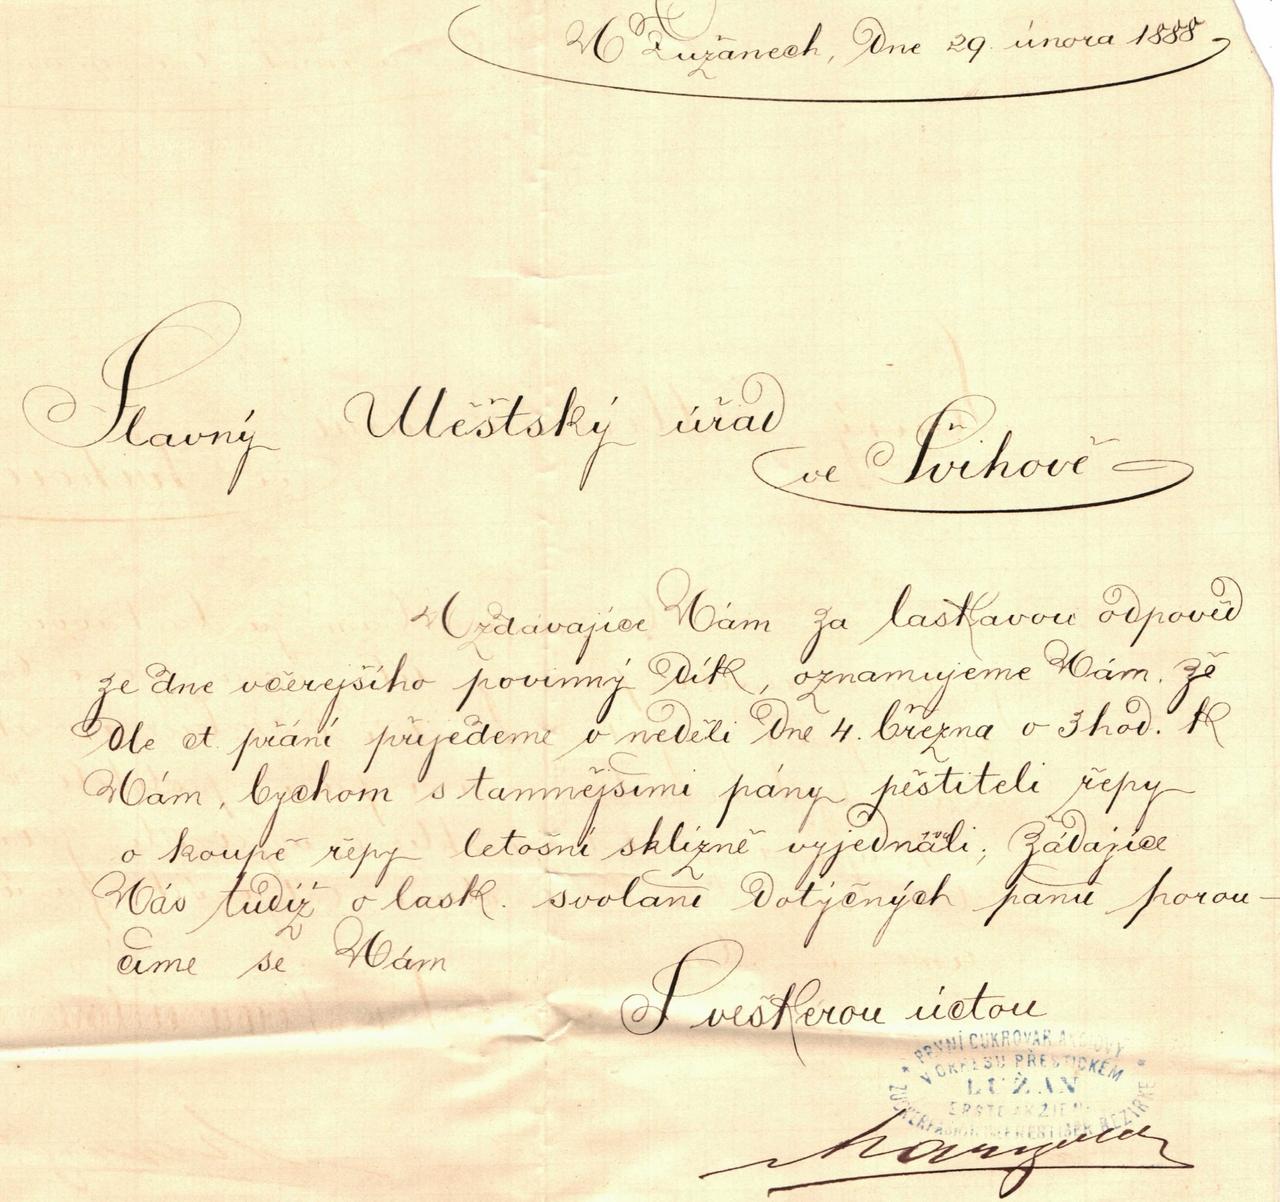 V Lužanech, dne 29. února 1888
Slavný Městský úřad
ve Švihově
Vzdávajíce Vám za laskavou odpověd
ze dne včerejšího povinný dík, oznamujeme Vám, že
dle ct. přání přijedeme v neděli dne 4. března o 3 hod. k
Vám, bychom s tamnějšimi pány pěstiteli řepy
o koupě řepy letošní sklizně vyjednáli; žádajíce
Vás tudíž o lask. svolaní dotýčných panů porou-
číme se Vám
S veškerou úctou
PRVNÍ CUKROVAR AKCIOVÝ
V OKRESU PŘESTICKÉM
LUŽAN
ERSTE AKZIEN-
ZUCKERFABRIK IM BEZIRKE